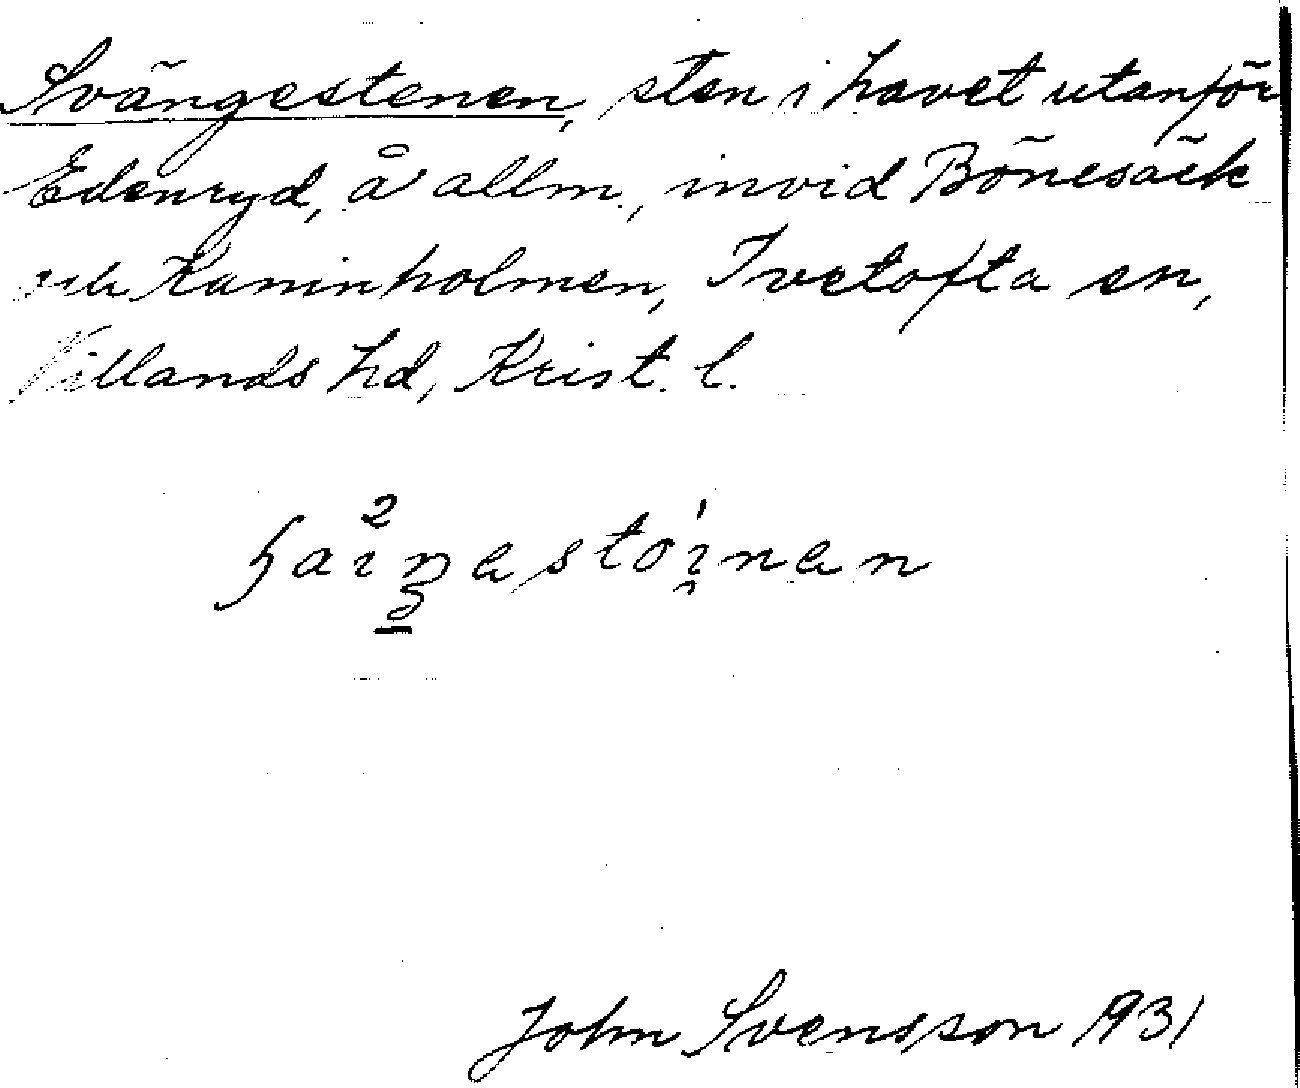 Svängestenen, sten i havet utanför
Edenryd, å allm., invid Bönesäck
och Kaninholmen, Ivetofta sn,
Villands hd, Krist. l.
John Svensson 1931